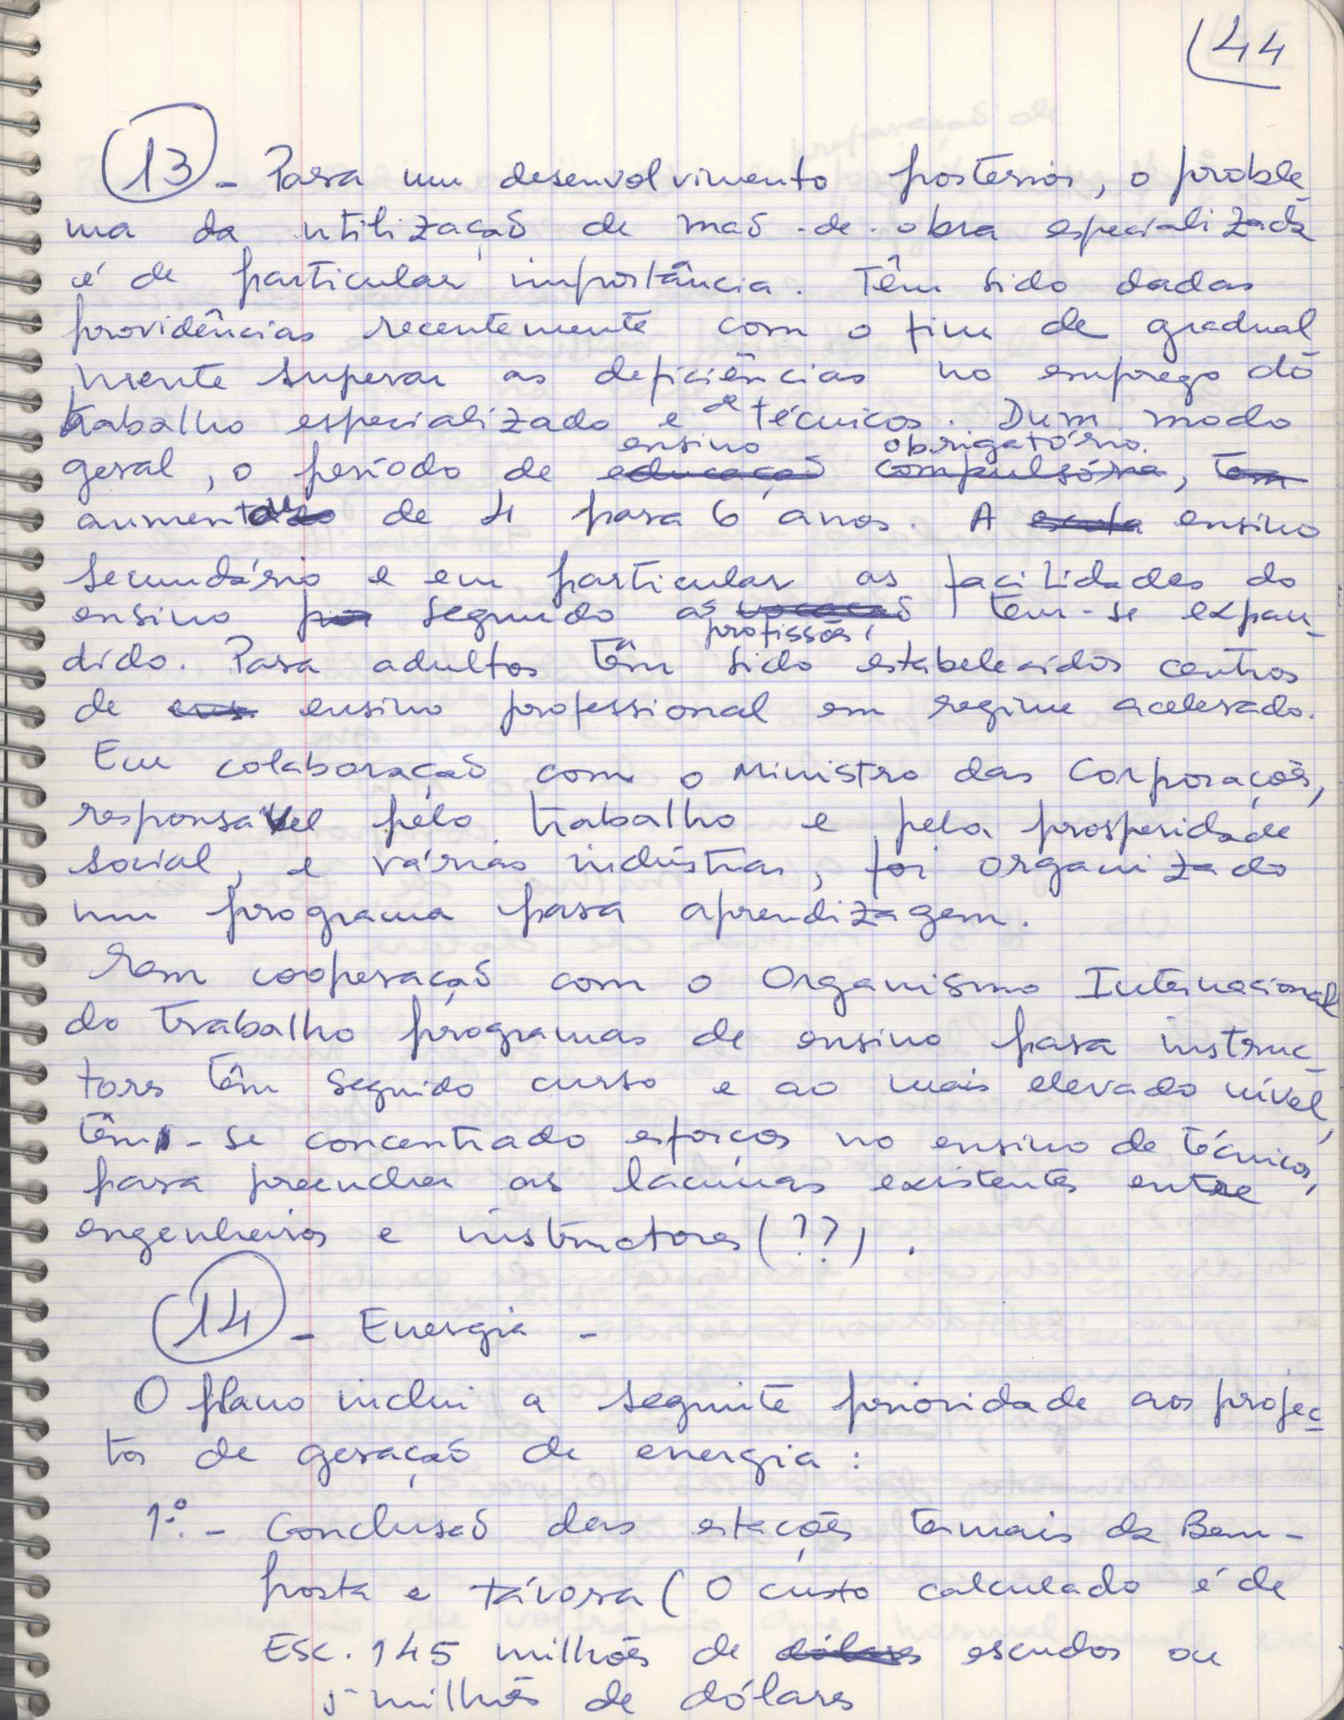 44
13 - Para um desenvolvimento posterior, o proble
ma da utilização de mão-de-obra especializada
é de particular importância. Têm sido dadas
providências recentemente com o fim de gradual
mente superar as deficiências no emprego do
trabalho especializado e de técnicos. Dum modo
ensino obrigatório.
geral, o período de educação compulsória, tem
aumentou de 4 para 6 anos. A escola ensino
secundário e em particular as facilidades do
ensino por segundo as vocação tem-se expan-
profissões,
dido. Para adultos têm sido estabelecidos centros
de ens ensino professional em regime acelerado.
Em colaboração com o Ministro das Corporações,
responsável pelo trabalho e pela prosperidade
social, e várias indústrias, foi organizado
um programa para aprendizagem.
Em cooperação com o Organismo Internacional
do Trabalho programas de ensino para instruc-
tores têm seguido curso e ao mais elevado nível,
têm-se concentrado esforços no ensino de técnicos,
para preencher as lacunas existentes entre
engenheiros e instructores (??).
14 - Energia -
O plano inclui a seguinte prioridade aos projec-
tos de geração de energia:
1º. - Conclusão das estações termais de Bem-
posta e Távora (O custo calculado é de
Esc. 145 milhões de dólares escudos ou
5 milhões de dólares